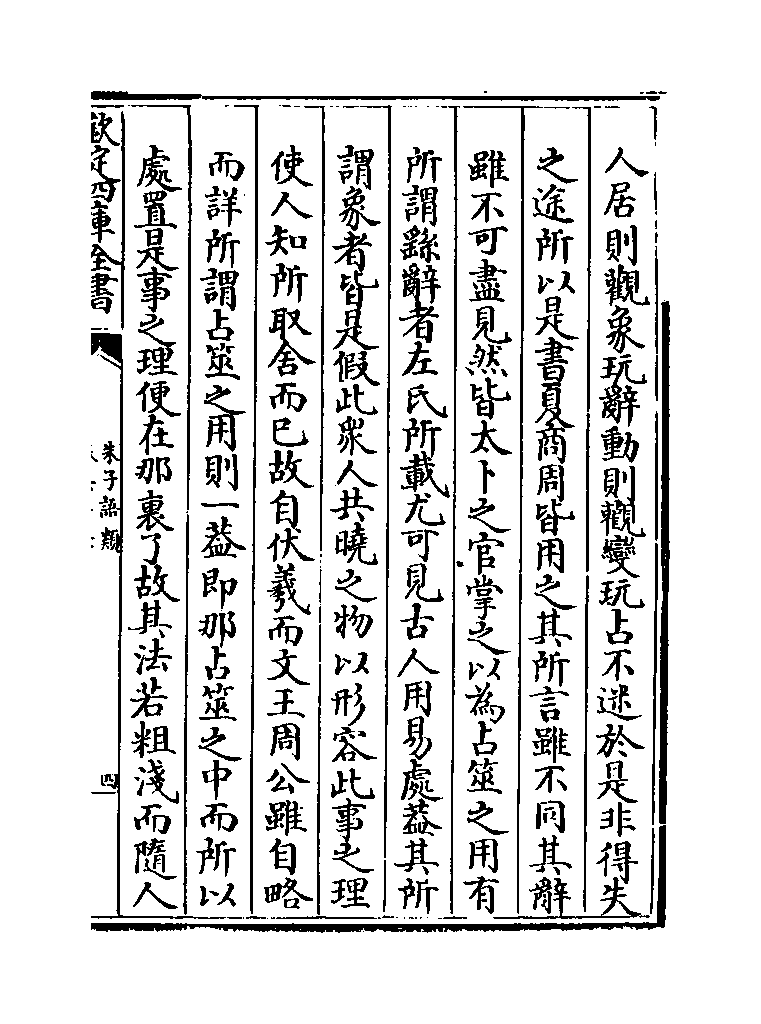 人居則觀象玩辭動則觀變玩占不迷於是非得失
之途所以是書夏商周皆用之其所言雖不同其辭
雖不可盡見然皆太卜之官掌之以為占筮之用有
所謂繇辭者左氏所載尤可見古人用易處葢其所
謂象者皆是假此衆人共曉之物以形容此事之理
使人知所取舍而已故自伏羲而文王周公雖自略
而詳所謂占筮之用則一葢即那占筮之中而所以
處置是事之理便在那裏了故其法若粗淺而隨人
欽定四庫全書
朱子語類
四